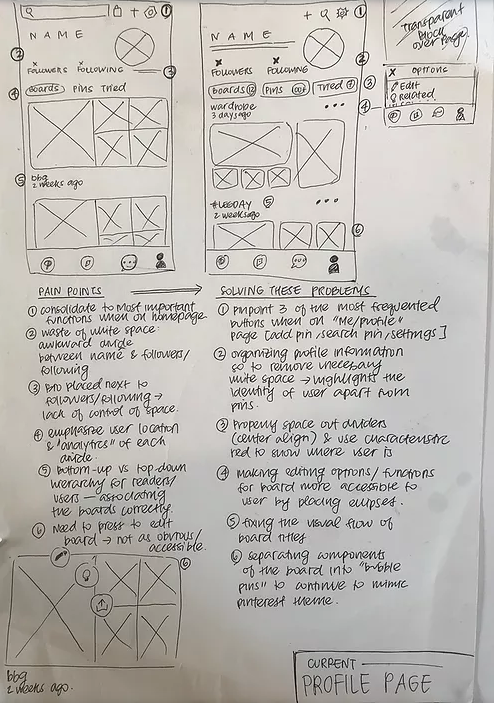 ①
NAME
②
FOLLOWERS FOLLOWING
③
④ Boards Pins Tried
⑤ bbq
2 weeks ago
①
NAME
②
FOLLOWERS FOLLOWING
Boards Pins Tried
③
wardrobe
3 days ago
④
#LEGDAY ⑤
2 weeks ago
⑥
transparent
block
over page.
X OPTIONS
Edit
Related
PAIN POINTS
① consolidate to most important
functions when on homepage
② waste of white space:
awkward divide
between name & followers/
following
③ bio placed next to
followers/following →
lack of control of space.
④ emphasize user location
& "analytics" of each
divide.
⑤ bottom-up vs top-down
hierarchy for readers/
users — associating
the boards correctly.
⑥ need to press to edit
board → not as obvious/
accessible.
⑥
bbq
2 weeks ago.
SOLVING THESE PROBLEMS
① pinpoint 3 of the most frequented
buttons when on "me/profile"
page [add pin, search pin, settings]
② organizing profile information
so to remove unecessary
white space → highlights the
identity of user apart from
pins.
③ Properly space out dividers
(center align) & use characteristic
red to show where user is
④ making editing options/functions
for board more accessible to
user by placing elipses.
⑤ fixing the visual flow of
board titles
⑥ separating components
of the board into "bubble
pins" to continue to mimic
pinterest theme.
CURRENT
PROFILE PAGE